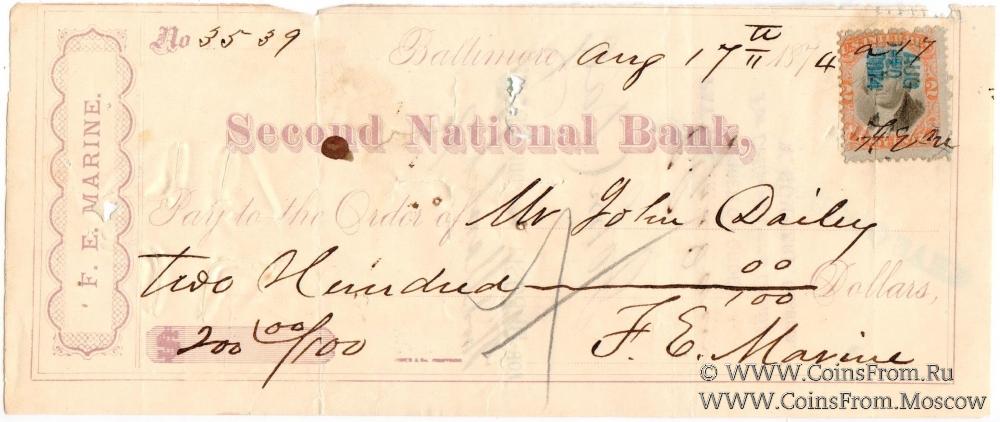 No 3539
Baltimore, Aug 17th 1874
F. E. MARINE.
Second National Bank,
Pay to the Order of Mr John Dailey
Two Hundred 00/100 Dollars,
$ 200 00/100
F. E. Marine
AUG
1874
a 17
F E M
© WWW.CoinsFrom.Ru
WWW.CoinsFrom.Moscow